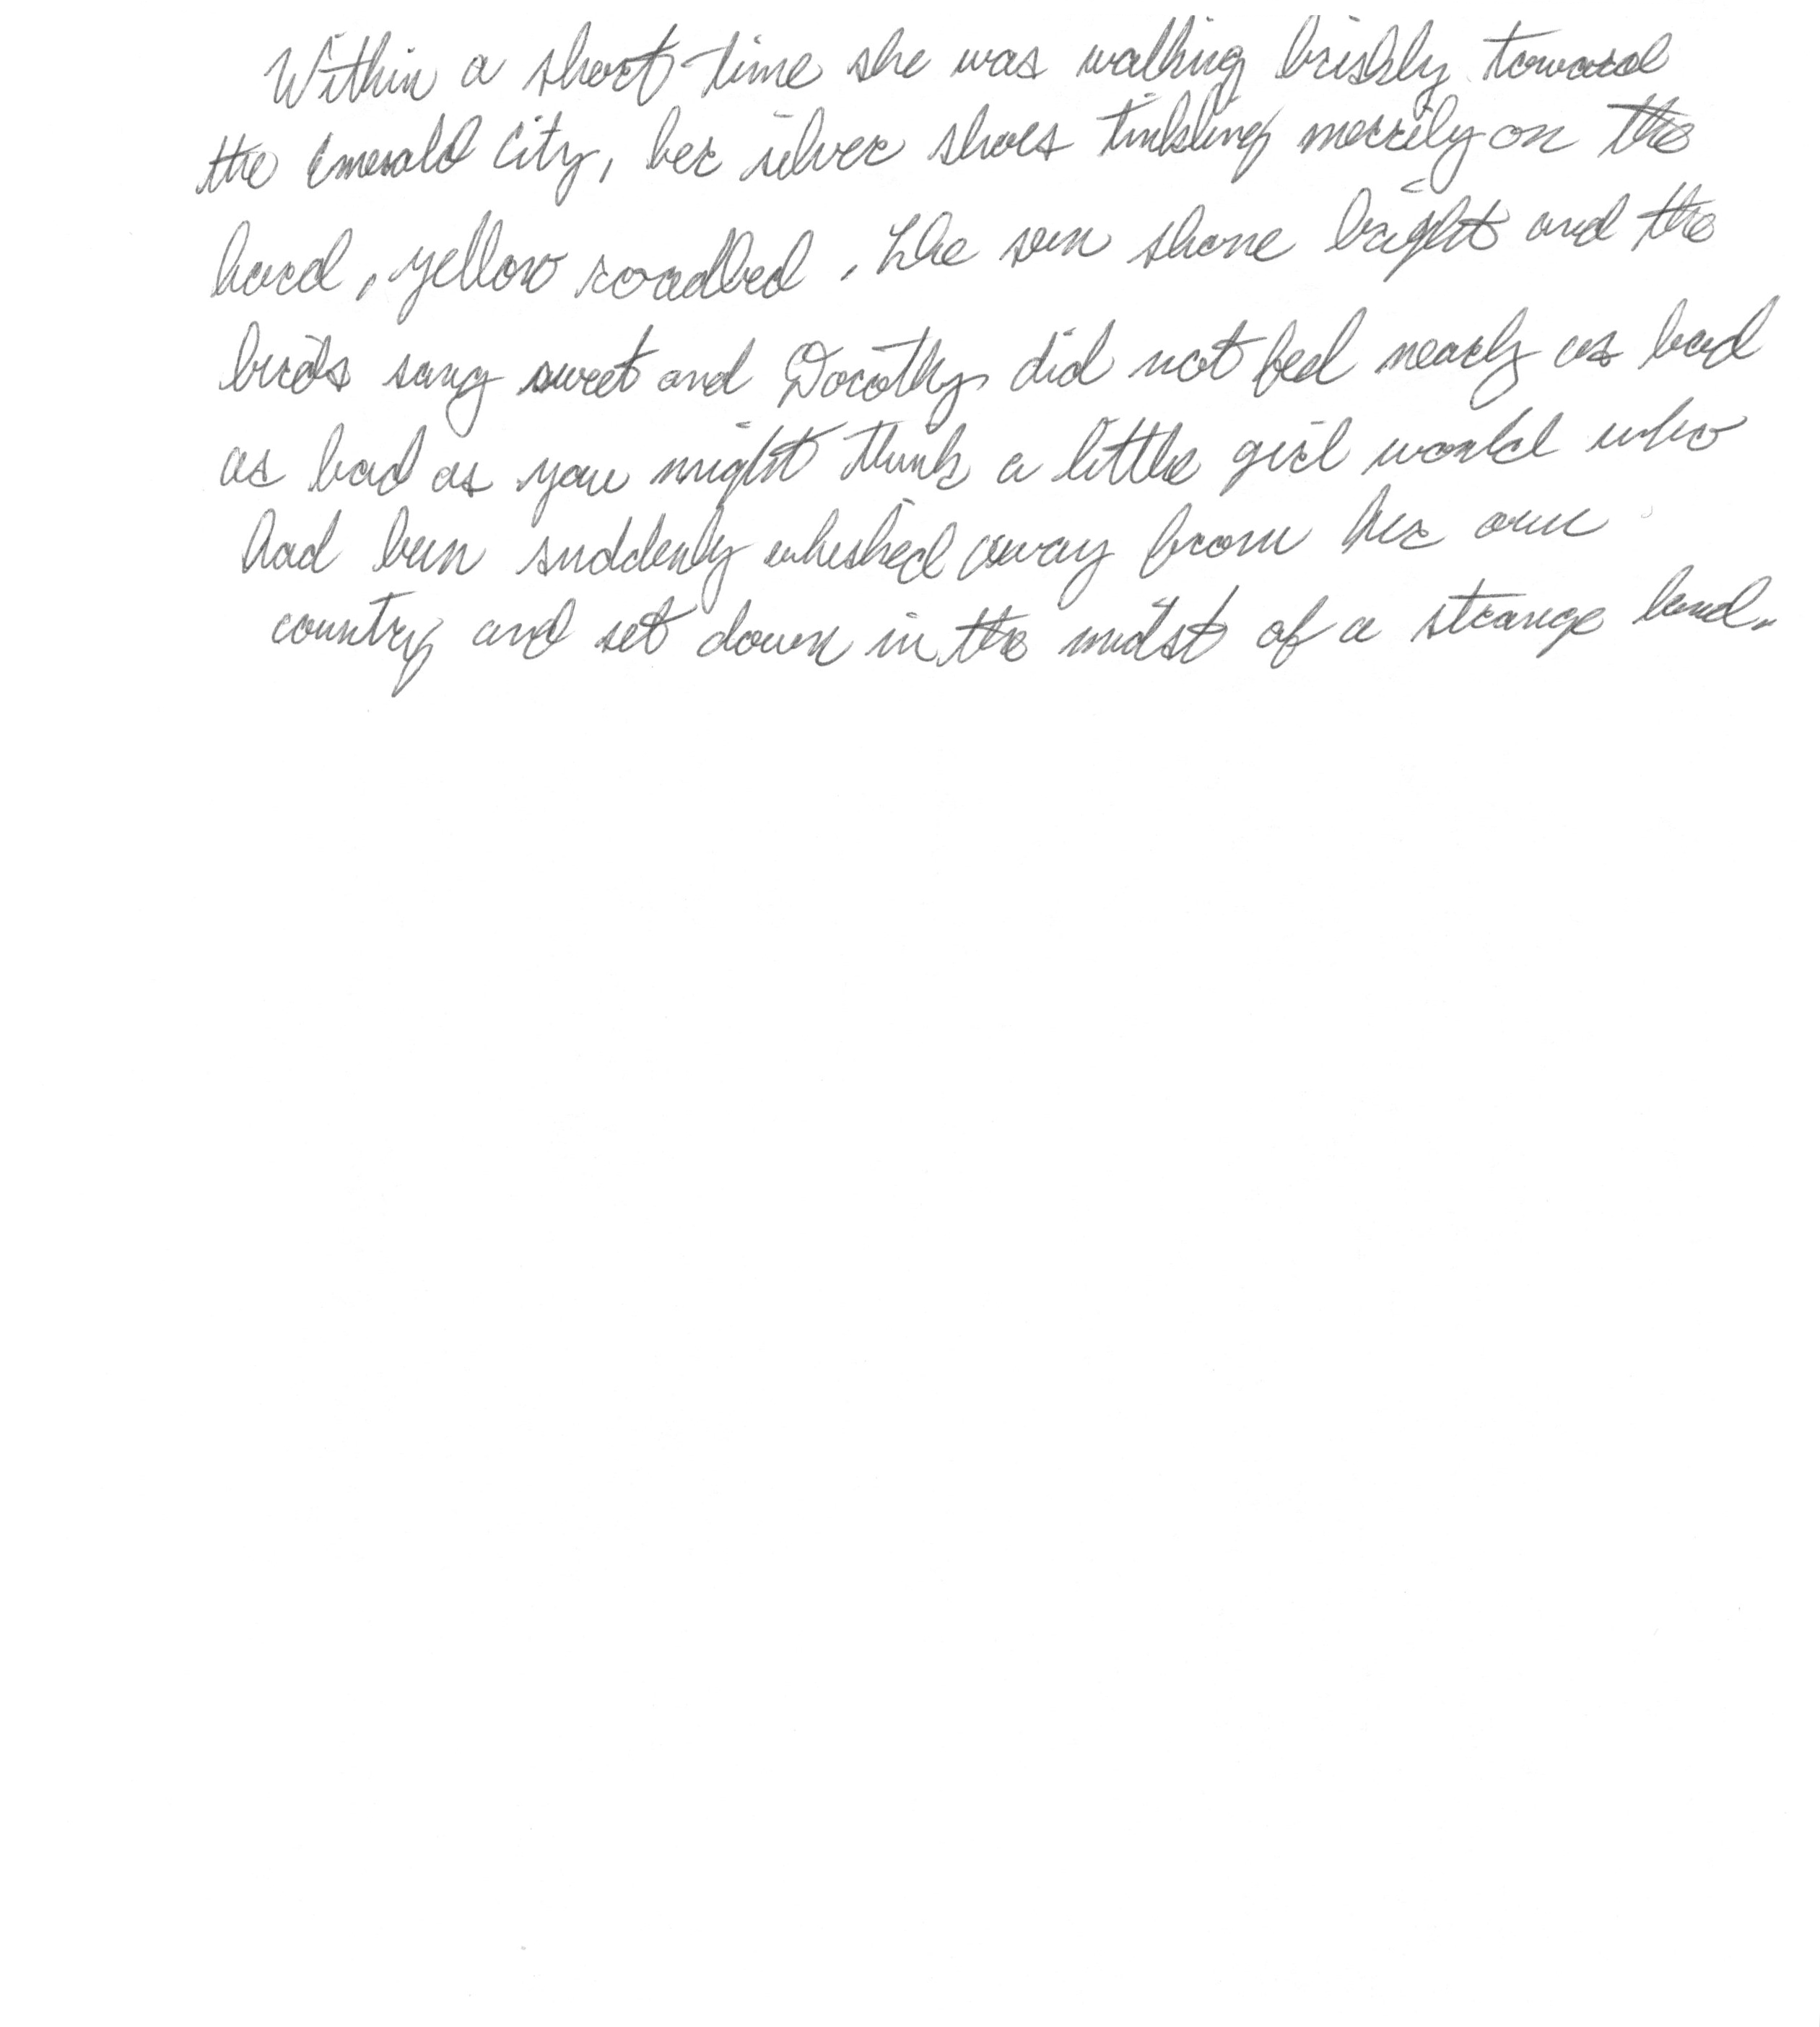 Within a short time she was walking briskly toward
the Emerald City, her silver shoes tinkling merrily on the
hard, yellow roadbed. The sun shone bright and the
birds sang sweet and Dorothy did not feel nearly as bad
as bad as you might think a little girl would who
had been suddenly whisked away from her own
country and set down in the midst of a strange land.